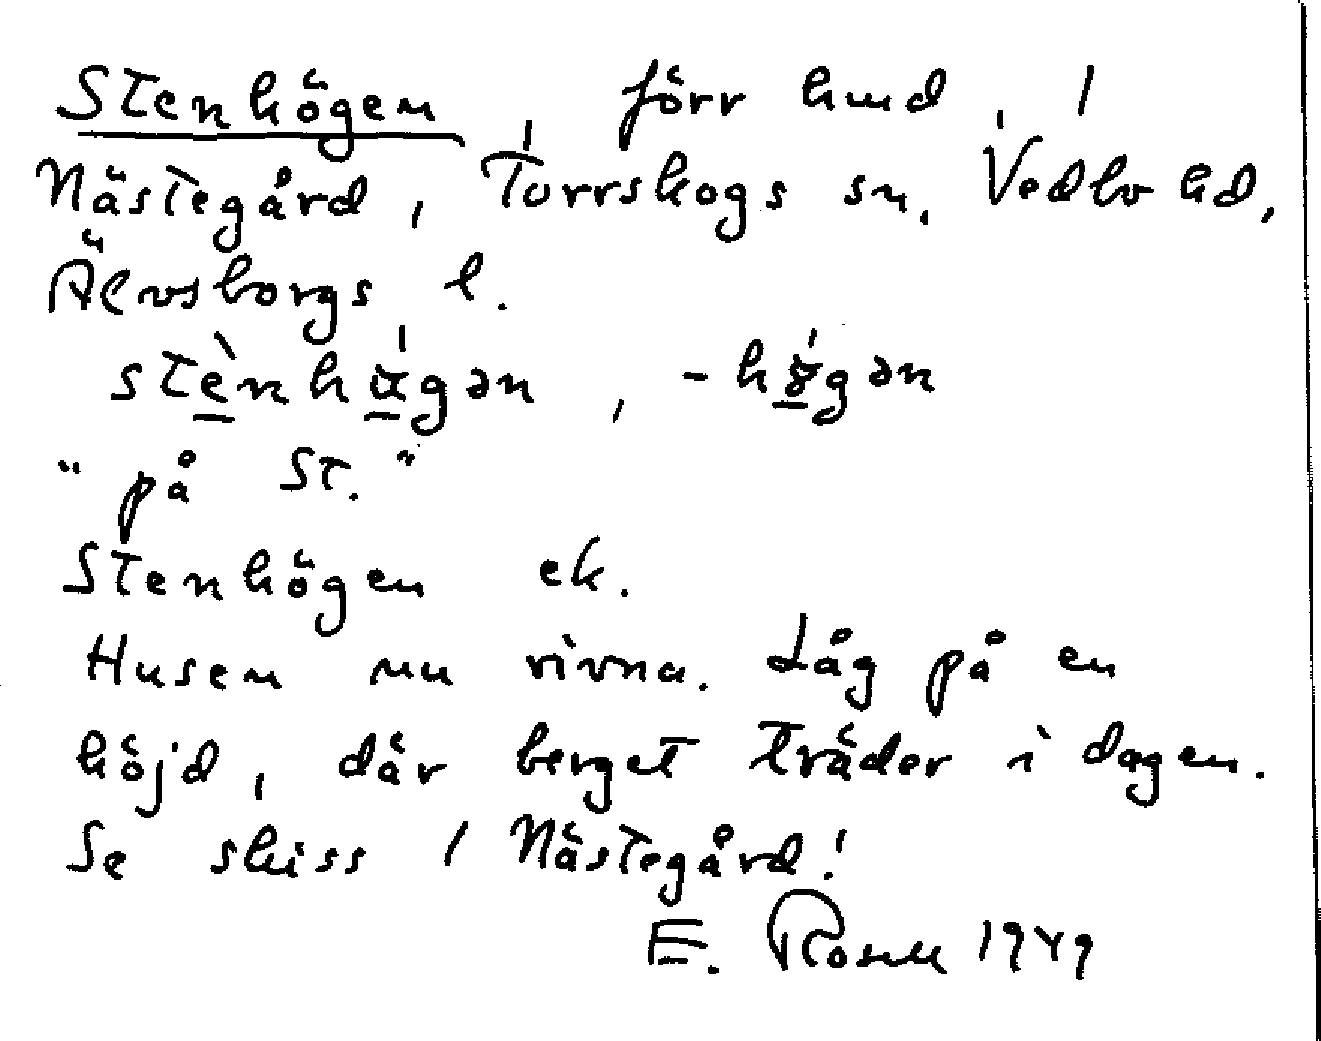 Stenhögen, förr hmd, /
Nästegård, Torrskogs sn, Vedbo hd,
Älvsborgs l.
"på St."
Stenhögen ek.
Husen nu rivna. Låg på en
höjd, där berget träder i dagen.
Se skiss / Nästegård!
E. Rosell 1949